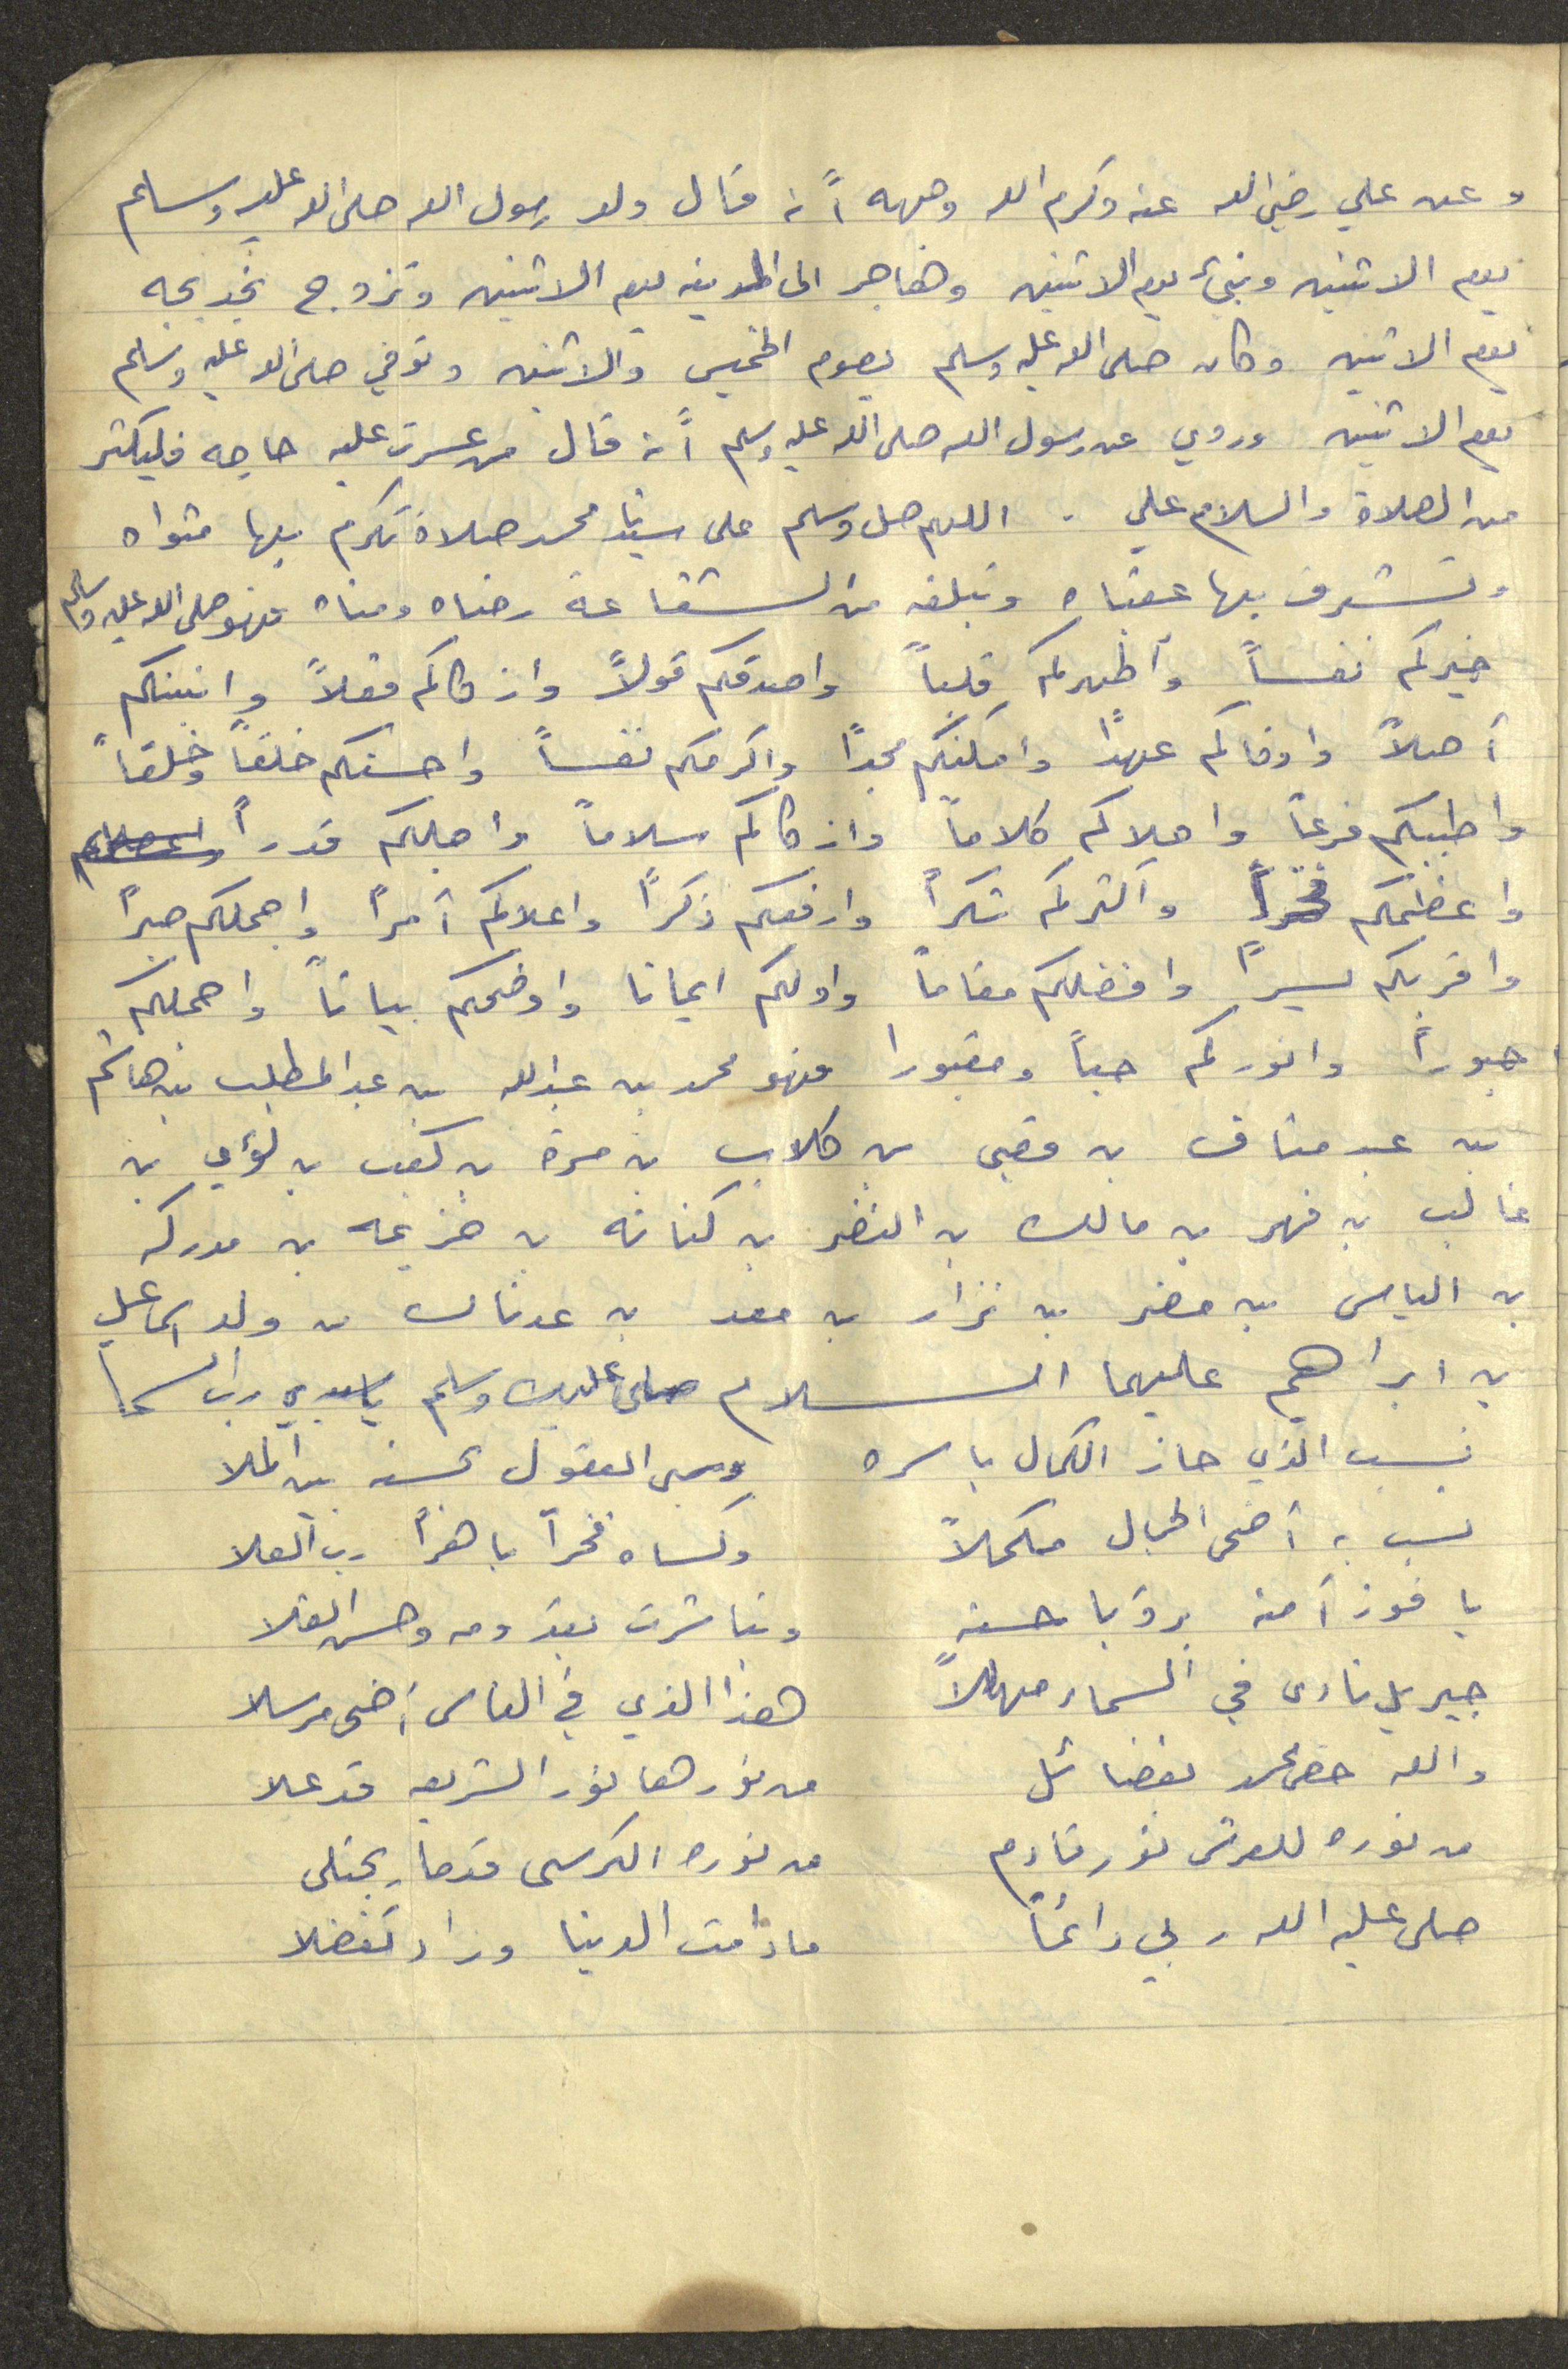 وعن علي رضي الله عنه وكرم الله وجهه أنه قال ولد رسول الله صلى الله عليه وسلم
يوم الاثنين ونبئ يوم الاثنين وهاجر الى المدينه يوم الاثنين وتزوج بخديجه
يوم الاثنين وكان صلى الله عليه وسلم يصوم الخميس والاثنين وتوفي صلى الله عليه وسلم
يوم الاثنين وروي عن رسول الله صلى الله عليه وسلم أنه قال من عسرت عليه حاجه فليكثر
من الصلاة والسلام علي . اللهم صل وسلم على سيدنا محمد صلاة تكرم بها مثواه
وتشرف بها عقباه وتبلغه من الشفاعة رضاه ومناه فهو صلى الله عليه وسلم
خيركم نفساً وأطهركم قلباً واصدقكم قولاً وازكاكم فعلاً واثبتكم
أصلاً واوفاكم عهداً وامكنكم مجداً واكرمكم نفساً واحسنكم خلقاً وخلقاً
واطيبكم فرعاً واحلاكم كلاماً وازكاكم سلاماً واجلكم قدراً
واعظمكم فخراً وأكثركم شكراً وارفعكم ذكراً واعلاكم أمراً واجملكم صبراً
واقربكم يسيراً وافضلكم مقاماً واولكم ايمانا واوضحكم بياناً واجملكم
حبوراً وانوركم حياً ومقبورا فهو محمد بن عبدالله بن عبد المطلب بن هاشم
بن عبد مناف بن قصي بن كلاب بن مرة بن كعب بن لؤي بن
غالب بن فهر بن مالك بن النضر بن كنانه بن خزيمه بن مدركه
بن الياس بن مضر بن نزار بن معد بن عدنان من ولد اسماعيل
بن ابراهيم عليهما السلام صلى عليك وسلم يا سيدي رب السما
نسب الذي حاز الكمال باسره وسبى العقول بحسنه بين الملا
نسب به أضحى الجمال مكملاً وكساه فخراً باهراً رب العلا
يا فوز آمنه برؤيا حسنه وتباشرت بقدومه وحش الفلا
جبريل نادى في السماء مهللاً هذا الذي في الناس أضحى مرسلا
والله خص محمد بفضائل من نورها نور الشريعه قد علا
من نوره للعرش نور قادم من نوره الكرسي قدصار يجتلى
صلى عليه الله ربي دائماً مادامت الدنيا وزاد تفضلا